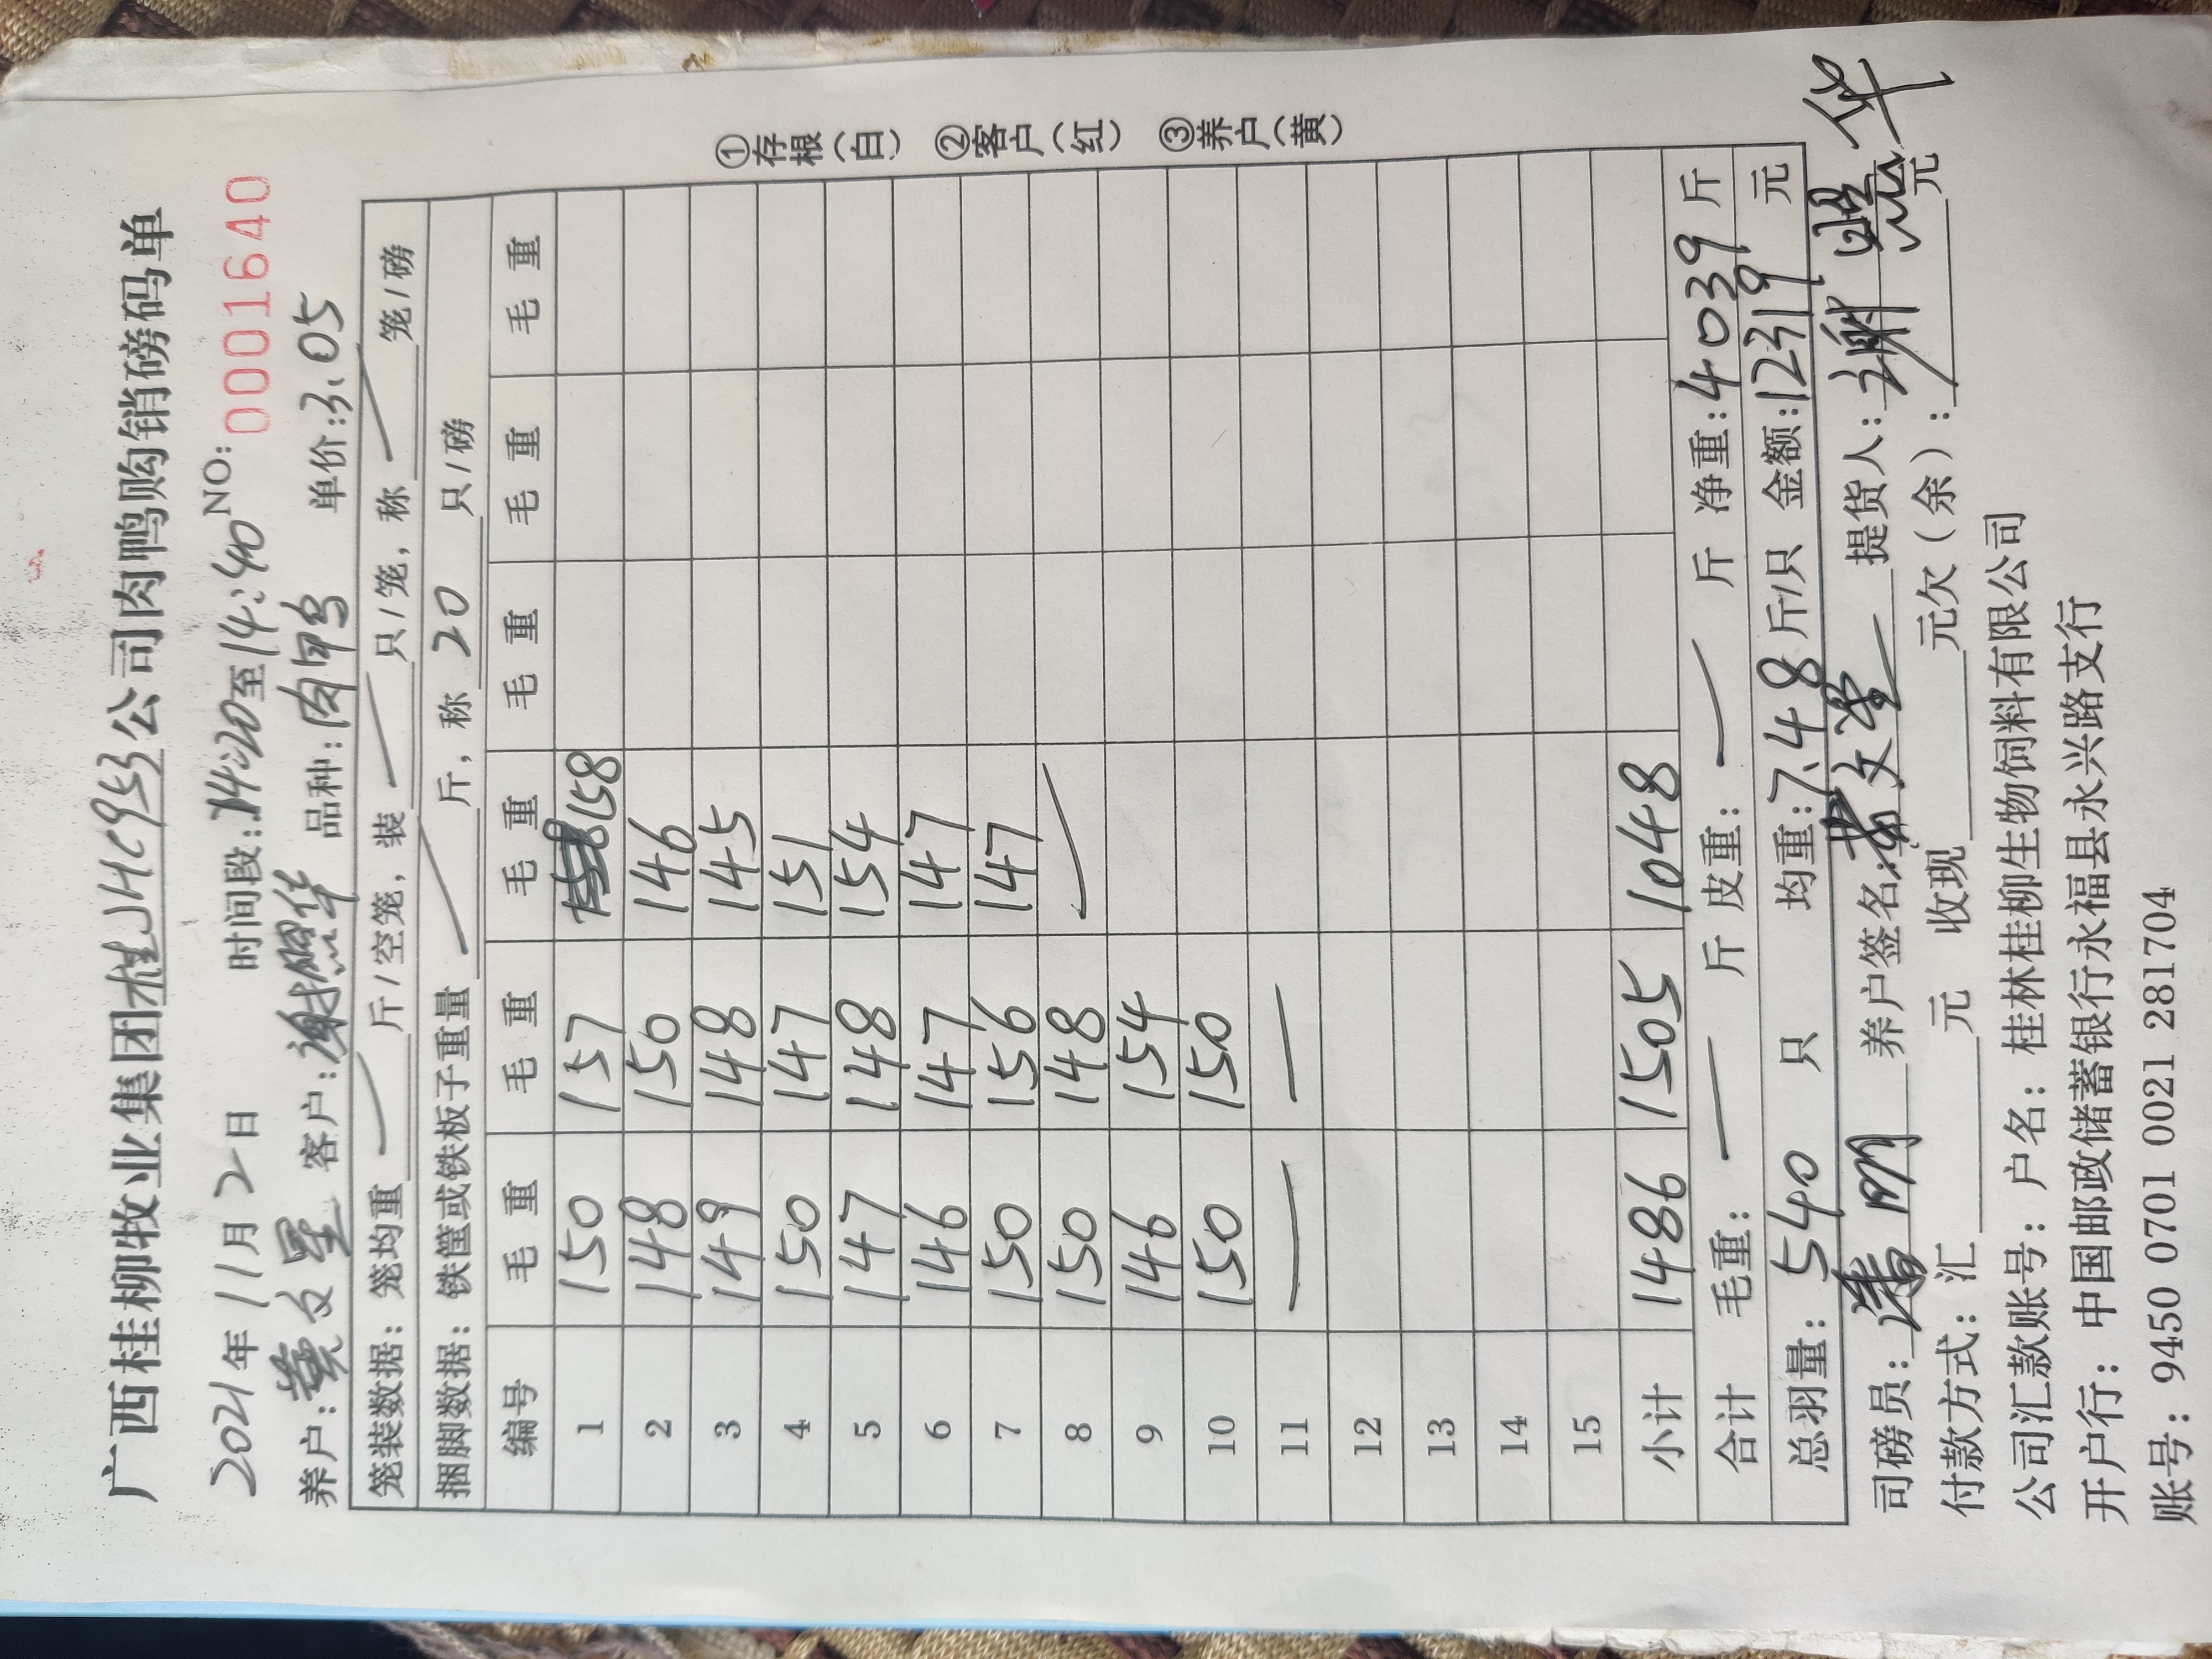 广西桂柳牧业集团桂JHC953公司肉鸭购销磅码单
2021年11月2日 时间段:14:20至14:40 NO: 0001640
养户:黄文星 客户:谢照华 品种:肉鸭 单价:3.05
笼装数据: 笼均重 斤/空笼,装 只/笼,称 笼/磅
捆脚数据: 铁筐或铁板子重量 斤,称 20 只/磅
编号 毛重 毛重 毛重 毛重 毛重 毛重
1 150 157 158
2 148 150 146
3 149 148 145
4 150 147 151
5 147 148 154
6 146 147 147
7 150 156 147
8 150 148
9 146 154
10 150 150
11
12
13
14
15
小计 1486 1505 1048
合计 毛重: 斤 皮重: 斤 净重:4039斤
总羽量: 540 只 均重:7.48斤/只 金额:12319元
司磅员: 养户签名:黄文星 提货人:谢照华
付款方式: 汇 元 收现 元欠(余): 元
公司汇款账号: 户名: 桂林桂柳生物饲料有限公司
开户行: 中国邮政储蓄银行永福县永兴路支行
账号: 9450 0701 0021 281704
①存根(白) ②客户(红) ③养户(黄)